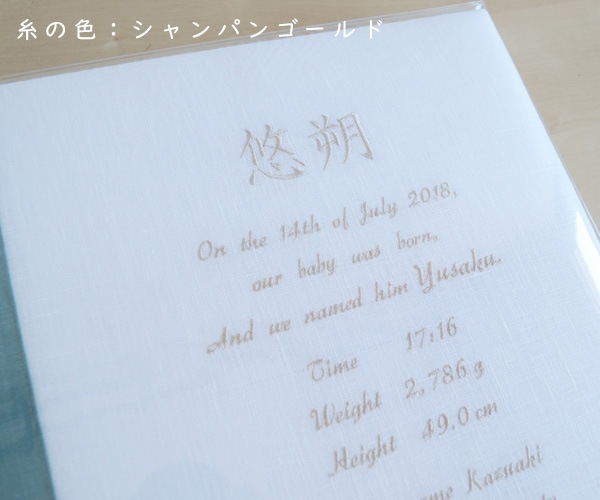 糸の色：シャンパンゴールド
悠朔
On the 14th of July 2018,
our baby was born.
And we named him Yusaku.
Time 17:16
Weight 2,786 g
Height 49.0 cm
Kazuaki